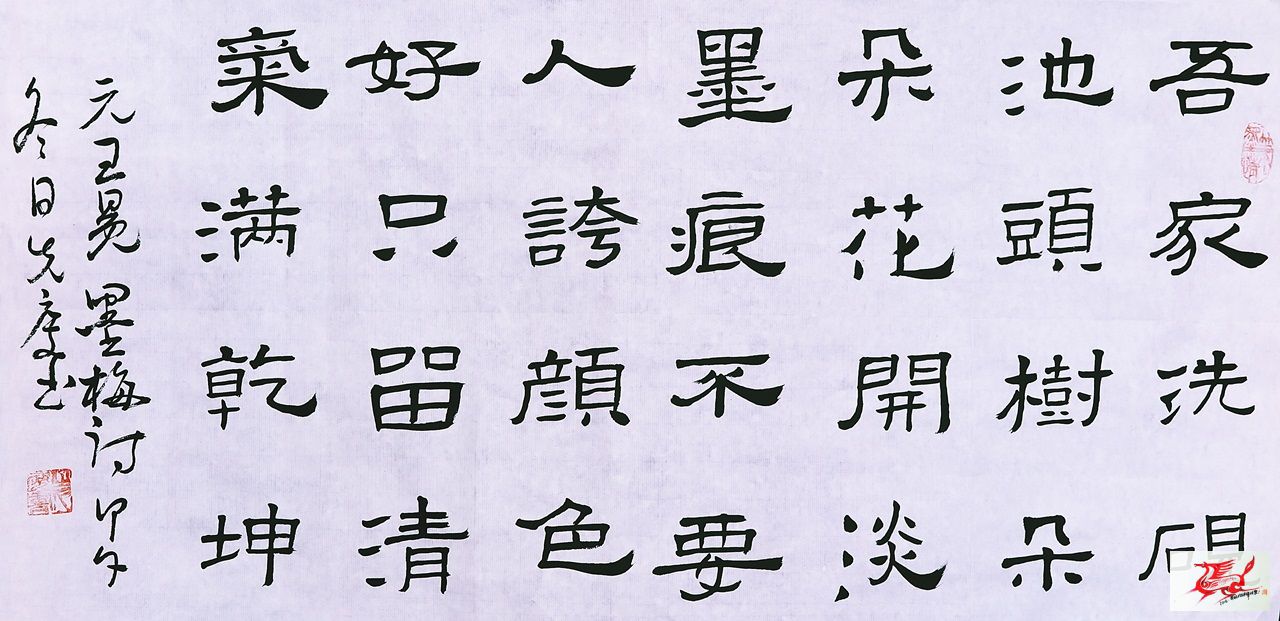 吾家洗硯
池頭樹朵
朵花開淡
墨痕不要
人誇顔色
好只留清
氣满乾坤
元王冕墨梅詩甲午
冬日先书